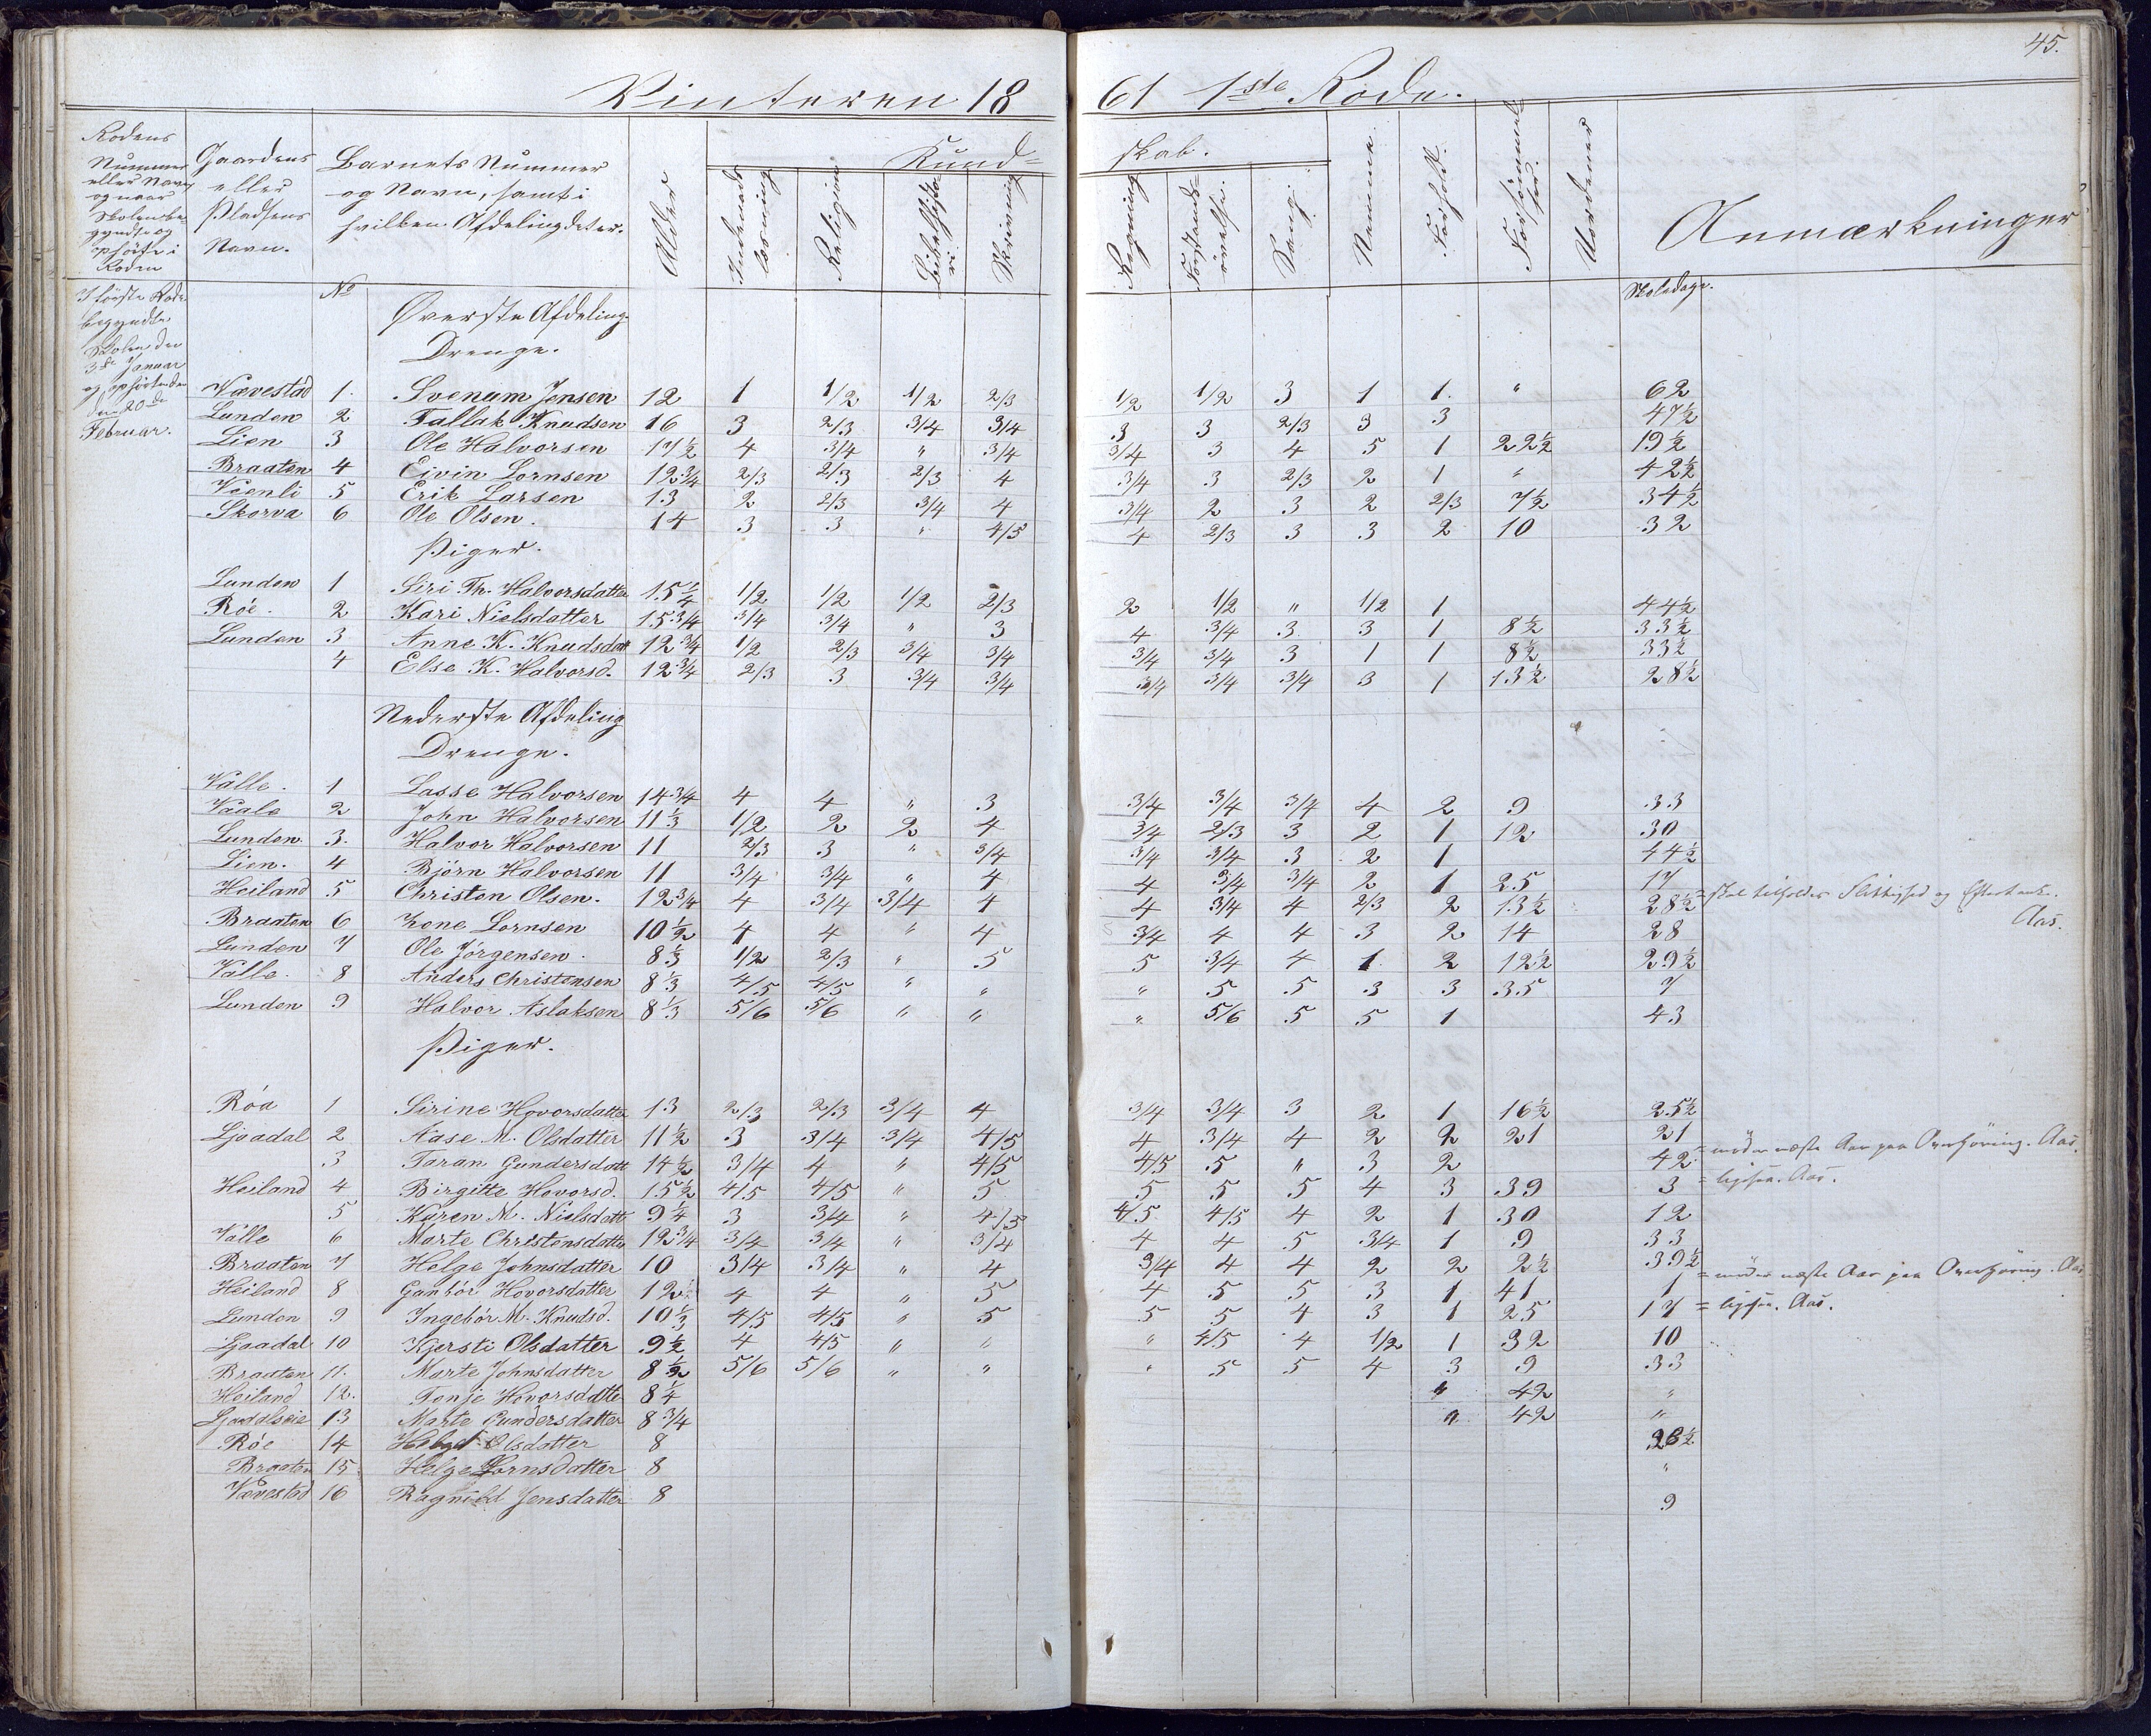 45.
Vinteren 1861 1ste Rode.
Rodens Nummer eller Navn og naar Skolen begyndte og ophørte i Roden
Gaardens eller Pladsens Navn.
Barnets Nummer og Navn, samt i hvilken Afdeling det er.
Alder
Kundskab.
Indenadslæsning
Religion
Bibelhistorie
Skrivning
Regning
Forstandsøvelse.
Sang.
Nemme.
Forhold.
Forsømmelser.
Uordener
Anmærkninger
I første Rode begyndte Skolen den 3de Januar og ophørte den 20de Februar.
No
Skoledage.
Øverste Afdeling
Drenge.
Vævestad 1. Svenum Jensen 12 1 1/2 1/2 2/3 1/2 1/2 3 1 1. " 62
Lunden 2 Tallak Knudsen 16 3 2/3 3/4 3/4 3 3 2/3 3 3 47½
Lien 3 Ole Halvorsen 17½ 4 3/4 " 3/4 3/4 3 4 5 1 22½ 19½
Braaten 4 Eivin Lornsen 12¾ 2/3 2/3 2/3 4 3/4 3 2/3 2 1 " 42½
Veenli 5 Erik Larsen 13 2 2/3 3/4 4 3/4 2 3 2 2/3 7½ 34½
Skorva 6 Ole Olsen. 14 3 3 " 4/5 4 2/3 3 3 2 10 32
Piger.
Lunden 1 Siri Th. Halvorsdatter 15¼ 1/2 1/2 1/2 2/3 2 1/2 " 1/2 1 44½
Röe. 2 Kari Nielsdatter 15¾ 3/4 3/4 " 3 4 3/4 3 3 1 8½ 33½
Lunden 3 Anne K. Knudsdatt 12¾ 1/2 2/3 3/4 3/4 3/4 3/4 3 1 1 8½ 33½
4 Else K. Halvorsd. 12¾ 2/3 3 3/4 3/4 3/4 3/4 3/4 3 1 13½ 28½
Nederste Afdeling
Drenge.
Valle. 1 Lasse Halvorsen 14¾ 4 4 " 3 3/4 3/4 3/4 4 2 9 33
Vaale 2 John Halvorsen 11⅓ 1/2 2 2 4 3/4 2/3 3 2 1 12 30
Lunden. 3. Halvor Halvorsen 11 2/3 3 " 3/4 3/4 3/4 3 2 1 44½
Lien. 4 Björn Halvorsen 11 3/4 3/4 " 4 4 3/4 3/4 2 1 25 17
Heiland 5 Christen Olsen. 12¾ 4 3/4 3/4 4 4 3/4 4 2/3 2 13½ 28½ = skal tilholdes Flittighed og Eftertanke. Aas.
Braaten 6 Lornsen 10½ 4 4 " 4 3/4 4 4 3 2 14 28
Lunden 7 Ole Jörgensen. 8⅓ 1/2 2/3 " 5 5 3/4 4 1 2 12½ 29½
Valle. 8 Anders Christensen 8⅓ 4/5 4/5 " " " 5 5 3 3 35 7
Lunden 9 Halvor Aslaksen 8⅓ 5/6 5/6 " " " 5/6 5 5 1 43
Piger.
Röa 1 Sirine Hovorsdatter 13 2/3 2/3 3/4 4 3/4 3/4 3 2 1 16½ 25½
Ljoadal 2 Aase M. Olsdatter 11½ 3 3/4 3/4 4/5 4 3/4 4 2 2 21 21
3 Taran Gundersdatt 14½ 3/4 4 " 4/5 4/5 5 " 3 2 42 = møder næste Aar paa Overhøring. Aas.
Heiland 4 Birgitte Hovorsd. 15½ 4/5 4/5 " 5 5 5 5 4 3 39 3 = ligesaa. Aas.
5 Karen M. Nielsdatt 9¼ 3 3/4 " 4/5 4/5 4/5 4 2 1 30 12
Valle 6 Marte Christensdatter 12¾ 3/4 3/4 " 3/4 4 4 5 3/4 1 9 33
Braaten 7 Helge Johnsdatter 10 3/4 3/4 " 4 3/4 4 4 2 2 2½ 39½
Heiland 8 Gunbör Hovorsdatter 12 4 4 " 5 4 5 5 3 1 41 1 = møder næste Aar paa Overhøring. Aas
Lunden 9 Ingebör M. Knudsd. 10⅓ 4/5 4/5 " 5 5 5 4 3 1 25 17 = ligesaa. Aas.
Ljoadal 10 Kjersti Olsdatter 9½ 4 4/5 " " " 4/5 4 1/2 1 32 10
Braaten 11. Marte Johnsdatter 8½ 5/6 5/6 " " " 5 5 4 3 9 33
Heiland 12. Tonje Hovorsdatte 8¼ " 42 "
Ljoadalseie 13 Marte Gundersdatter 8¾ " 42 "
Röe 14 Helge Olsdatter 8
Braaten 15 Helge Lornsdatter 8 "
Vævestad 16 Ragnild Jensdatter 8 9